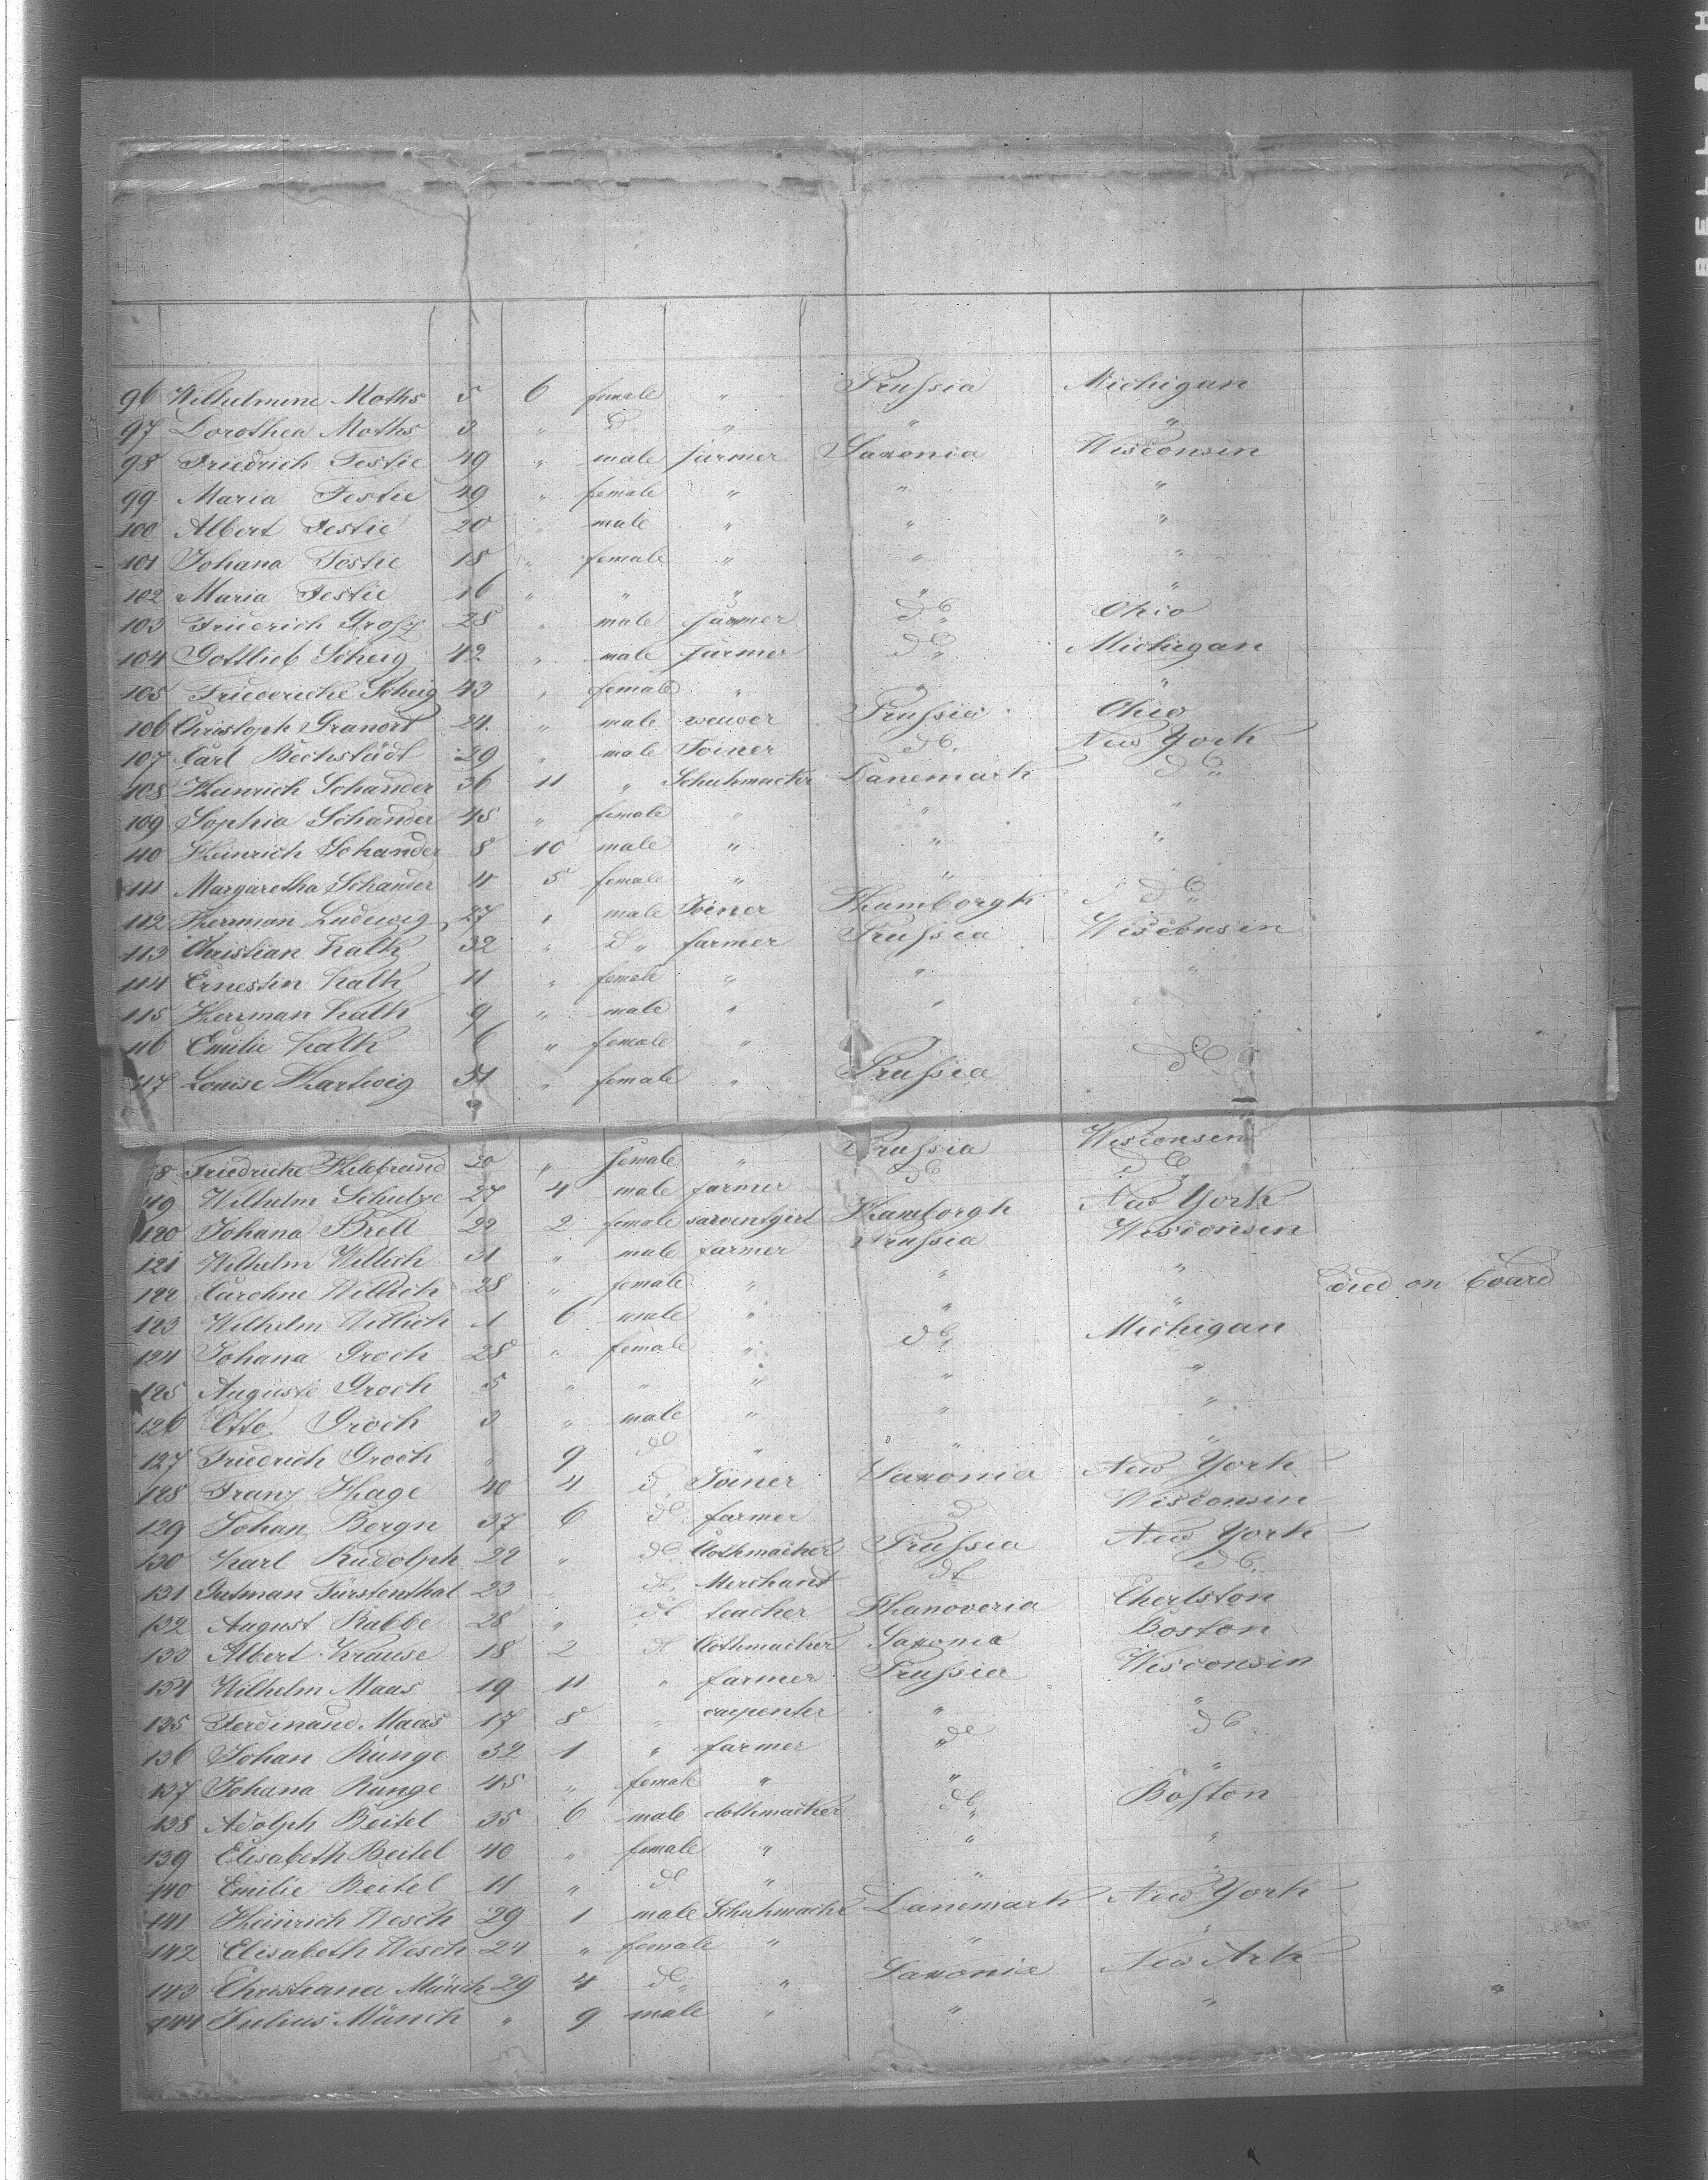 96 Wilhelmine Moths 5 6 female " Prussia Michigan
97 Dorothea Moths 3 " do " " "
98 Friedrich Festie 49 " male farmer Saxonia Wisconsin
99 Maria Festie 49 " female " " "
100 Albert Festie 20 " male " " "
101 Johana Festie 18 " female " " "
102 Maria Festie 16 " " " " "
103 Friedrich Grosz 28 " male farmer do Ohio
104 Gottlieb Scheig 42 " male farmer do Michigan
105 Friedericke Scheig 43 " female " " "
106 Christoph Granort 24 " male weawer Prussia Ohio
107 Carl Bechstädt 29 " male Joiner do New York
108 Heinrich Schander 36 11 " Schuhmacher Danemark do
109 Sophia Schander 45 " female " " "
110 Heinrich Schander 8 10 male " " "
111 Margaretha Schander 4 5 female " "
112 Herrman Ludewig 27 " male Joiner Hamborgh do
113 Christian Kath 32 " do farmer Prussia Wisconsin
114 Ernestin Kath 11 " female " " "
115 Herrman Kath 9 " male " "
116 Emilie Kath 6 " female "
117 Louise Hartwig 51 " female " Prussia do
118 Friedricke Hilebrand 20 " female " Prussia Wisconsen
119 Wilhelm Schulze 27 4 male farmer do do
120 Johana Brell 22 2 female sarventgirl Hamborgh New York
121 Wilhelm Willich 31 " male farmer Prussia Wisconsen
122 Caroline Willich 28 " female " " "
123 Wilhelm Willich 1 6 male " " " died on board
124 Johana Groch 28 " female " do Michigan
125 Auguste Groch 5 " " " " "
126 Otto Groch 3 " male " " "
127 Friedrich Groch " 9 do " " "
128 Franz Hage 40 4 d Joiner Saxonia New York
129 Johan Bergn 37 6 do farmer d Wisconsin
130 Karl Rudolph 22 " do Clothmacher Prussia New York
131 Gutman Fürstenthal 23 " do Merchant do do
132 August Rabbe 28 " do teacher Hanoveria Cherlston
133 Albert Krause 18 2 do Clothmacher Saxonia Boston
134 Wilhelm Maas 19 11 " farmer Prussia Wisconsin
135 Ferdinand Maas 17 8 " carpenter " "
136 Johan Runge 32 1 " farmer do do
137 Johana Runge 45 " female " " "
138 Adolph Beitel 35 6 male clothmacher do Boston
139 Elisabeth Beitel 40 " female " " "
140 Emilie Beitel 11 " do " " "
141 Heinrich Wesch 29 1 male Schuhmache Danemark New York
142 Elisabeth Wesch 24 " female " " "
143 Christiana Münch 29 4 do " Saxonia New Ark
144 Julius Münch " 9 male " " "